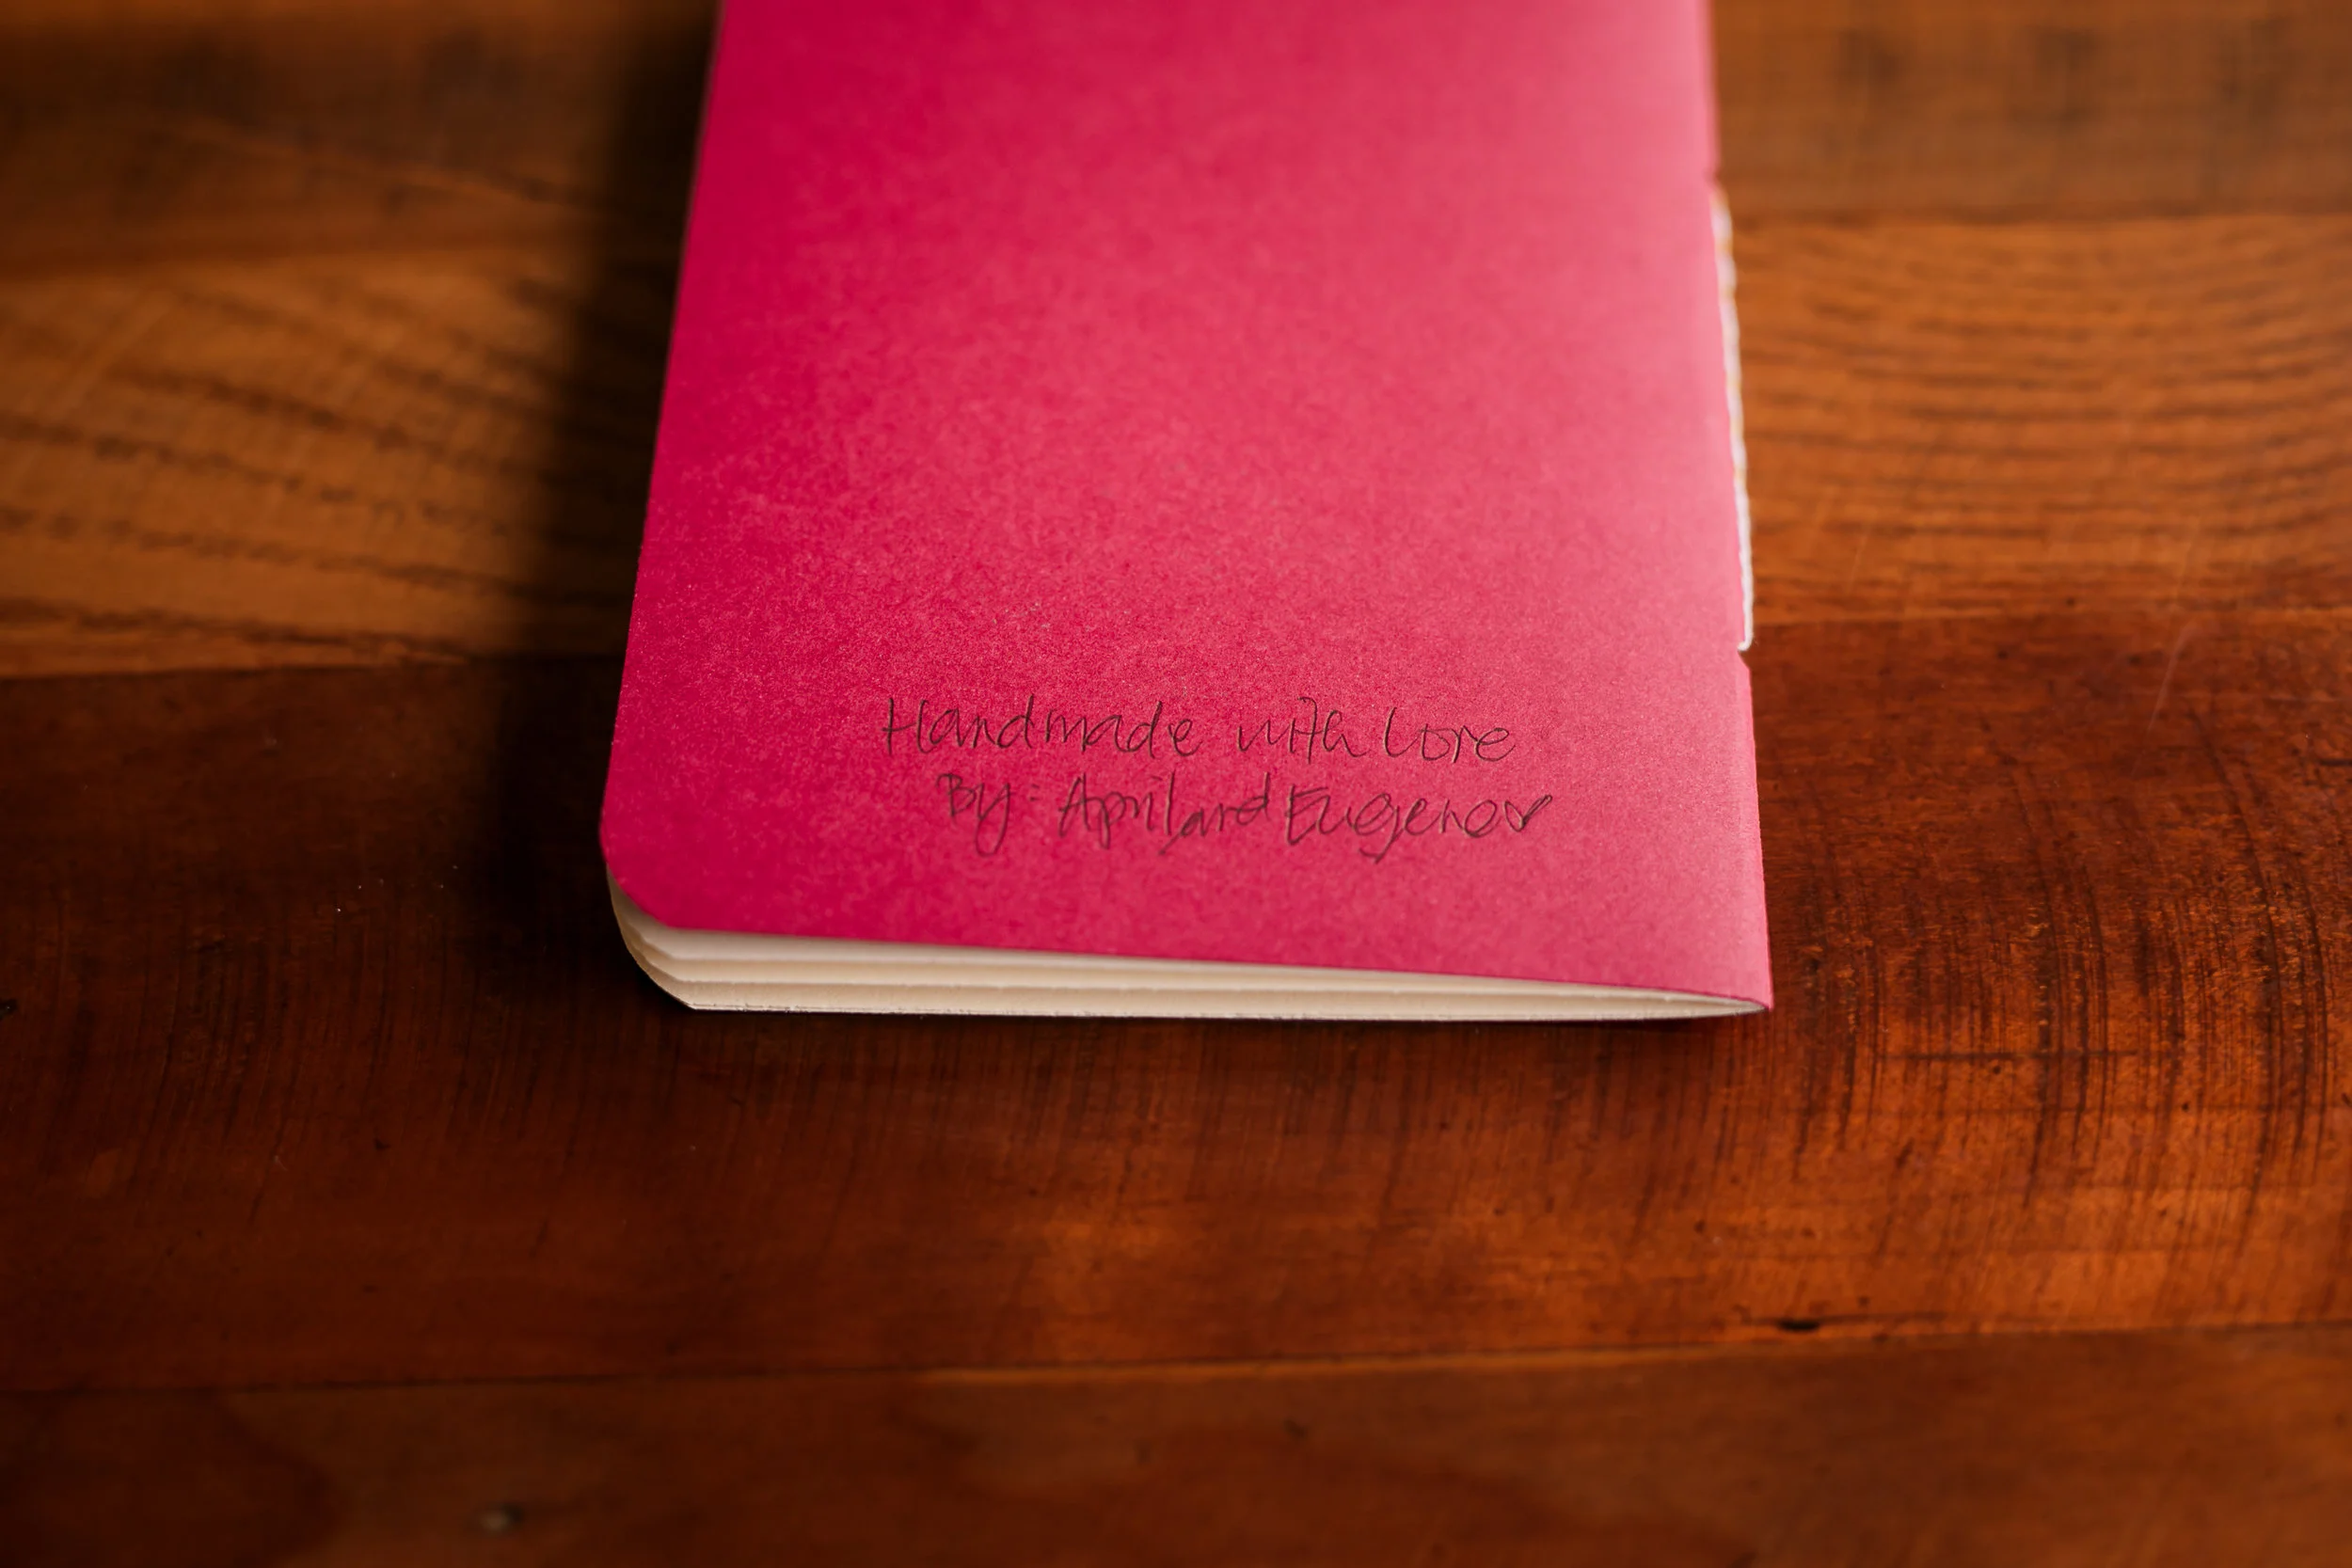 Handmade with Love
By: April and Eugene ♥